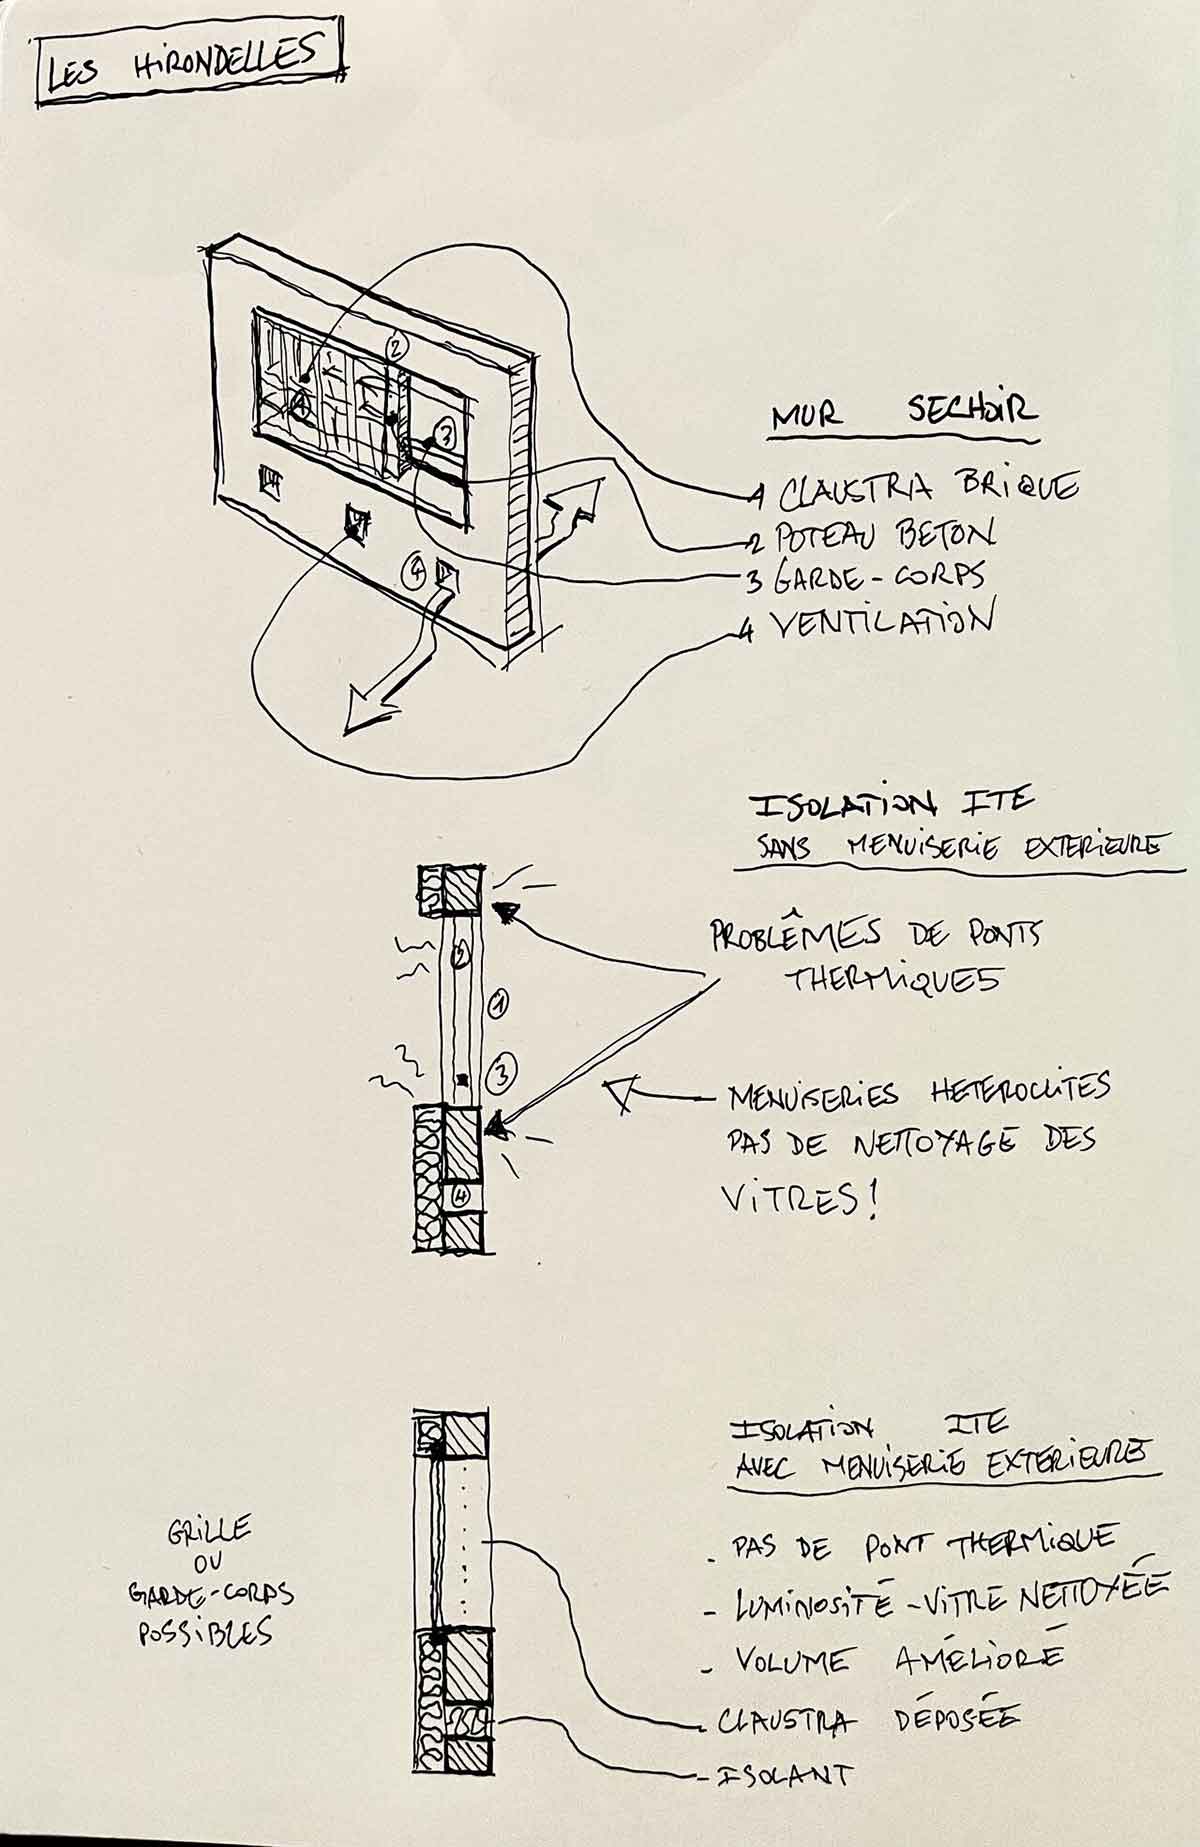 LES HIRONDELLES
MUR SECHOIR
1 CLAUSTRA BRIQUE
2 POTEAU BETON
3 GARDE-CORPS
4 VENTILATION
2
1
3
4
ISOLATION ITE
SANS MENUISERIE EXTERIEURE
PROBLÊMES DE PONTS
THERMIQUES
2
1
3
4
MENUISERIES HETEROCLITES
PAS DE NETTOYAGE DES
VITRES!
ISOLATION ITE
AVEC MENUISERIE EXTERIEURE
GRILLE
OU
GARDE-CORPS
POSSIBLES
. PAS DE PONT THERMIQUE
- LUMINOSITÉ - VITRE NETTOYÉE
- VOLUME AMÉLIORÉ
- CLAUSTRA DÉPOSÉE
- ISOLANT